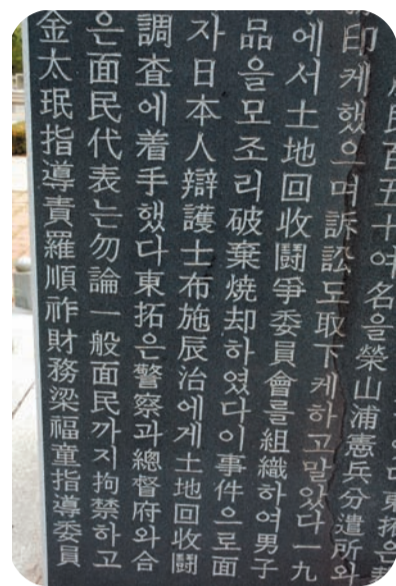 東拓은
民百五十여名을榮山浦憲兵分遣所와
印케했으며訴訟도取下케하고말았다一九
에서土地回收鬪爭委員會를組織하여男子
品을모조리破棄燒却하였다이事件으로面
자日本人辯護士布施辰治에게土地回收鬪
調査에着手했다東拓은警察과總督府와合
은面民代表는勿論一般面民까지拘禁하고
金太珉指導責羅順祚財務梁福童指導委員